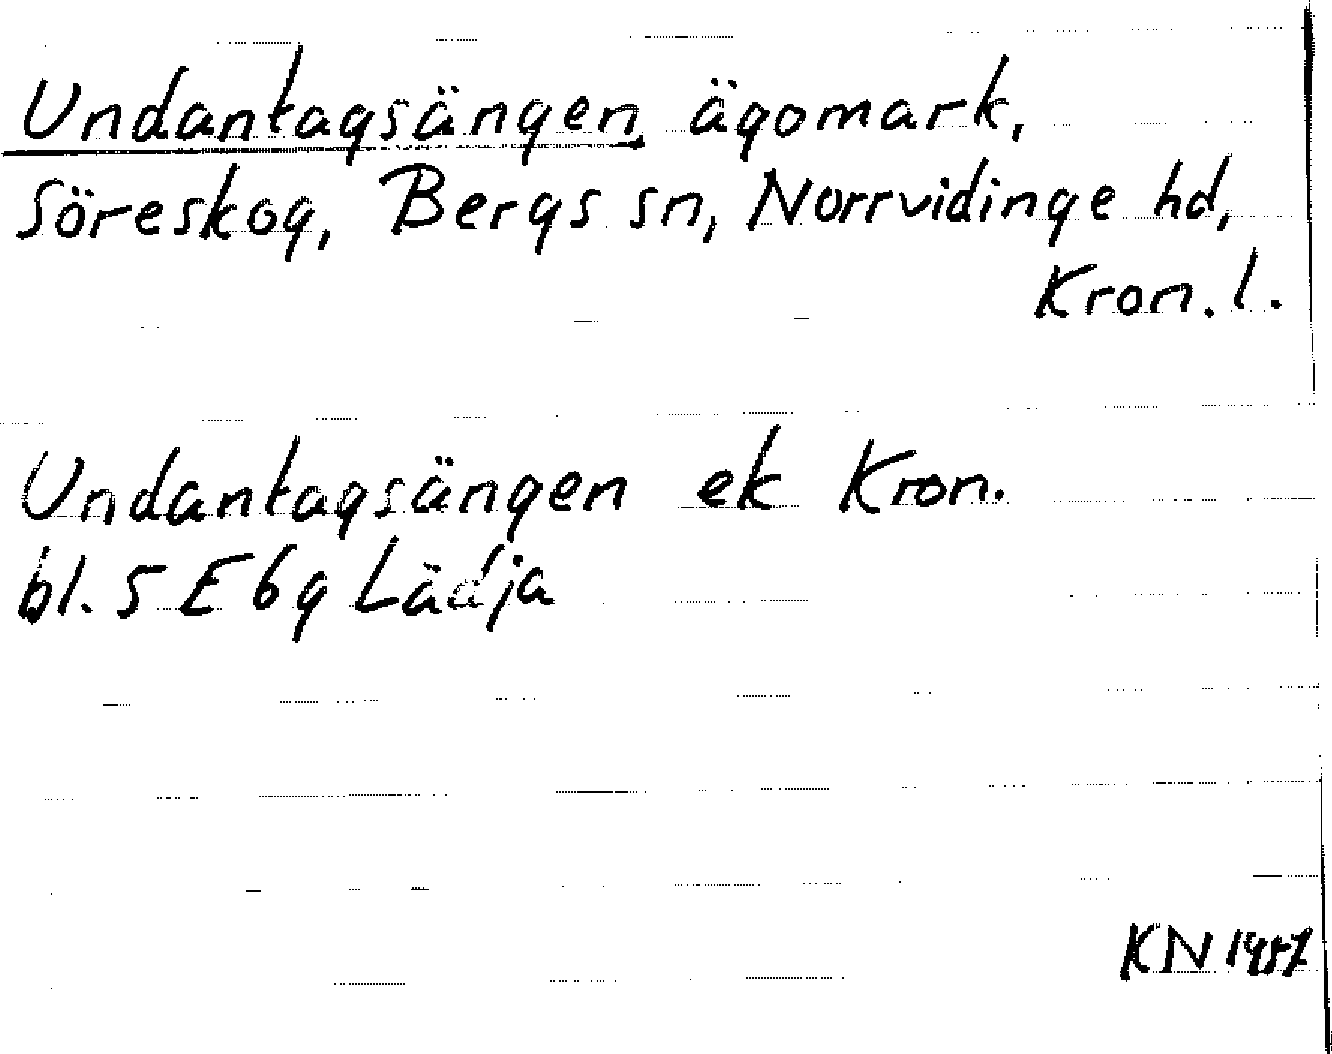 Undantagsängen, ägomark,
Söreskog, Bergs sn, Norrvidinge hd,
Kron. l.
Undantagsängen ek Kron.
bl. 5 E 6g Lädja
KN